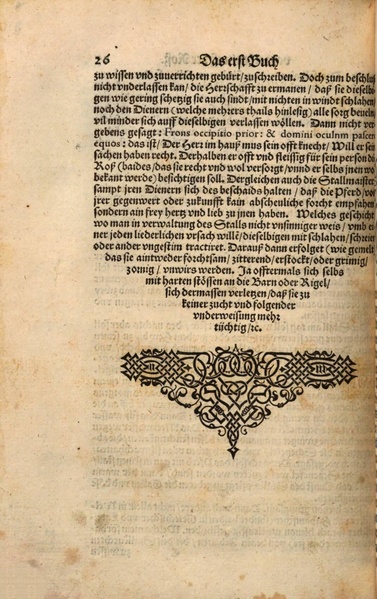 26 Das erst Buch
zu wissen vnd zuuerrichten gebürt/zuschreiben. Doch zum beschluß
nicht vnderlassen kan/ die Herrschafft zu ermanen/ daß sie dieselbi
gen wie gering schetzig sie auch sindt/mit nichten in windt schlahen/
noch den Dienern (welche mehrers theils hinlesig) alle sorg beuelen/
vil minder sich auff dieselbigen verlassen wöllen. Dann nicht ver
gebens gesagt: Frons occipitio prior: & domini oculum pascere
equos: das ist/ Der Herr im hauß mus sein offt knecht/ Will er sein
sachen haben recht. Derhalben er offt vnd fleissig für sein person die
Roß (baides/das sie recht vnd wol versorgt/vnnd er selbs jnen wol
bekant werde) besichtigen soll. Dergleichen auch die Stallmaister
sampt jren Dienern sich des beschaids halten / daß die Pferd/vor
jrer gegenwert oder zukunfft kain abscheuliche forcht empfahen/
sondern ain frey hertz vnd lieb zu jnen haben. Welches geschicht/
wo man in verwaltung des Stalls nicht vnsinniger weis/ vmb ei
ner jeden liederlichen vrsach willē/dieselbigen mit schlahen/schreien
oder ander vngestim tractiret. Darauß dann erfolget (wie gemelt)
das sie aintweder forchtsam/ zitterend/erstockt/oder grimig/
zornig / vnwirs werden. Ja offtermals sich selbs
mit harten stössen an die Barn oder Rigel/
sich dermassen verletzen/daß sie zu
keiner zucht vnd folgender
vnderweisung mehr
tüchtig/ꝛc.